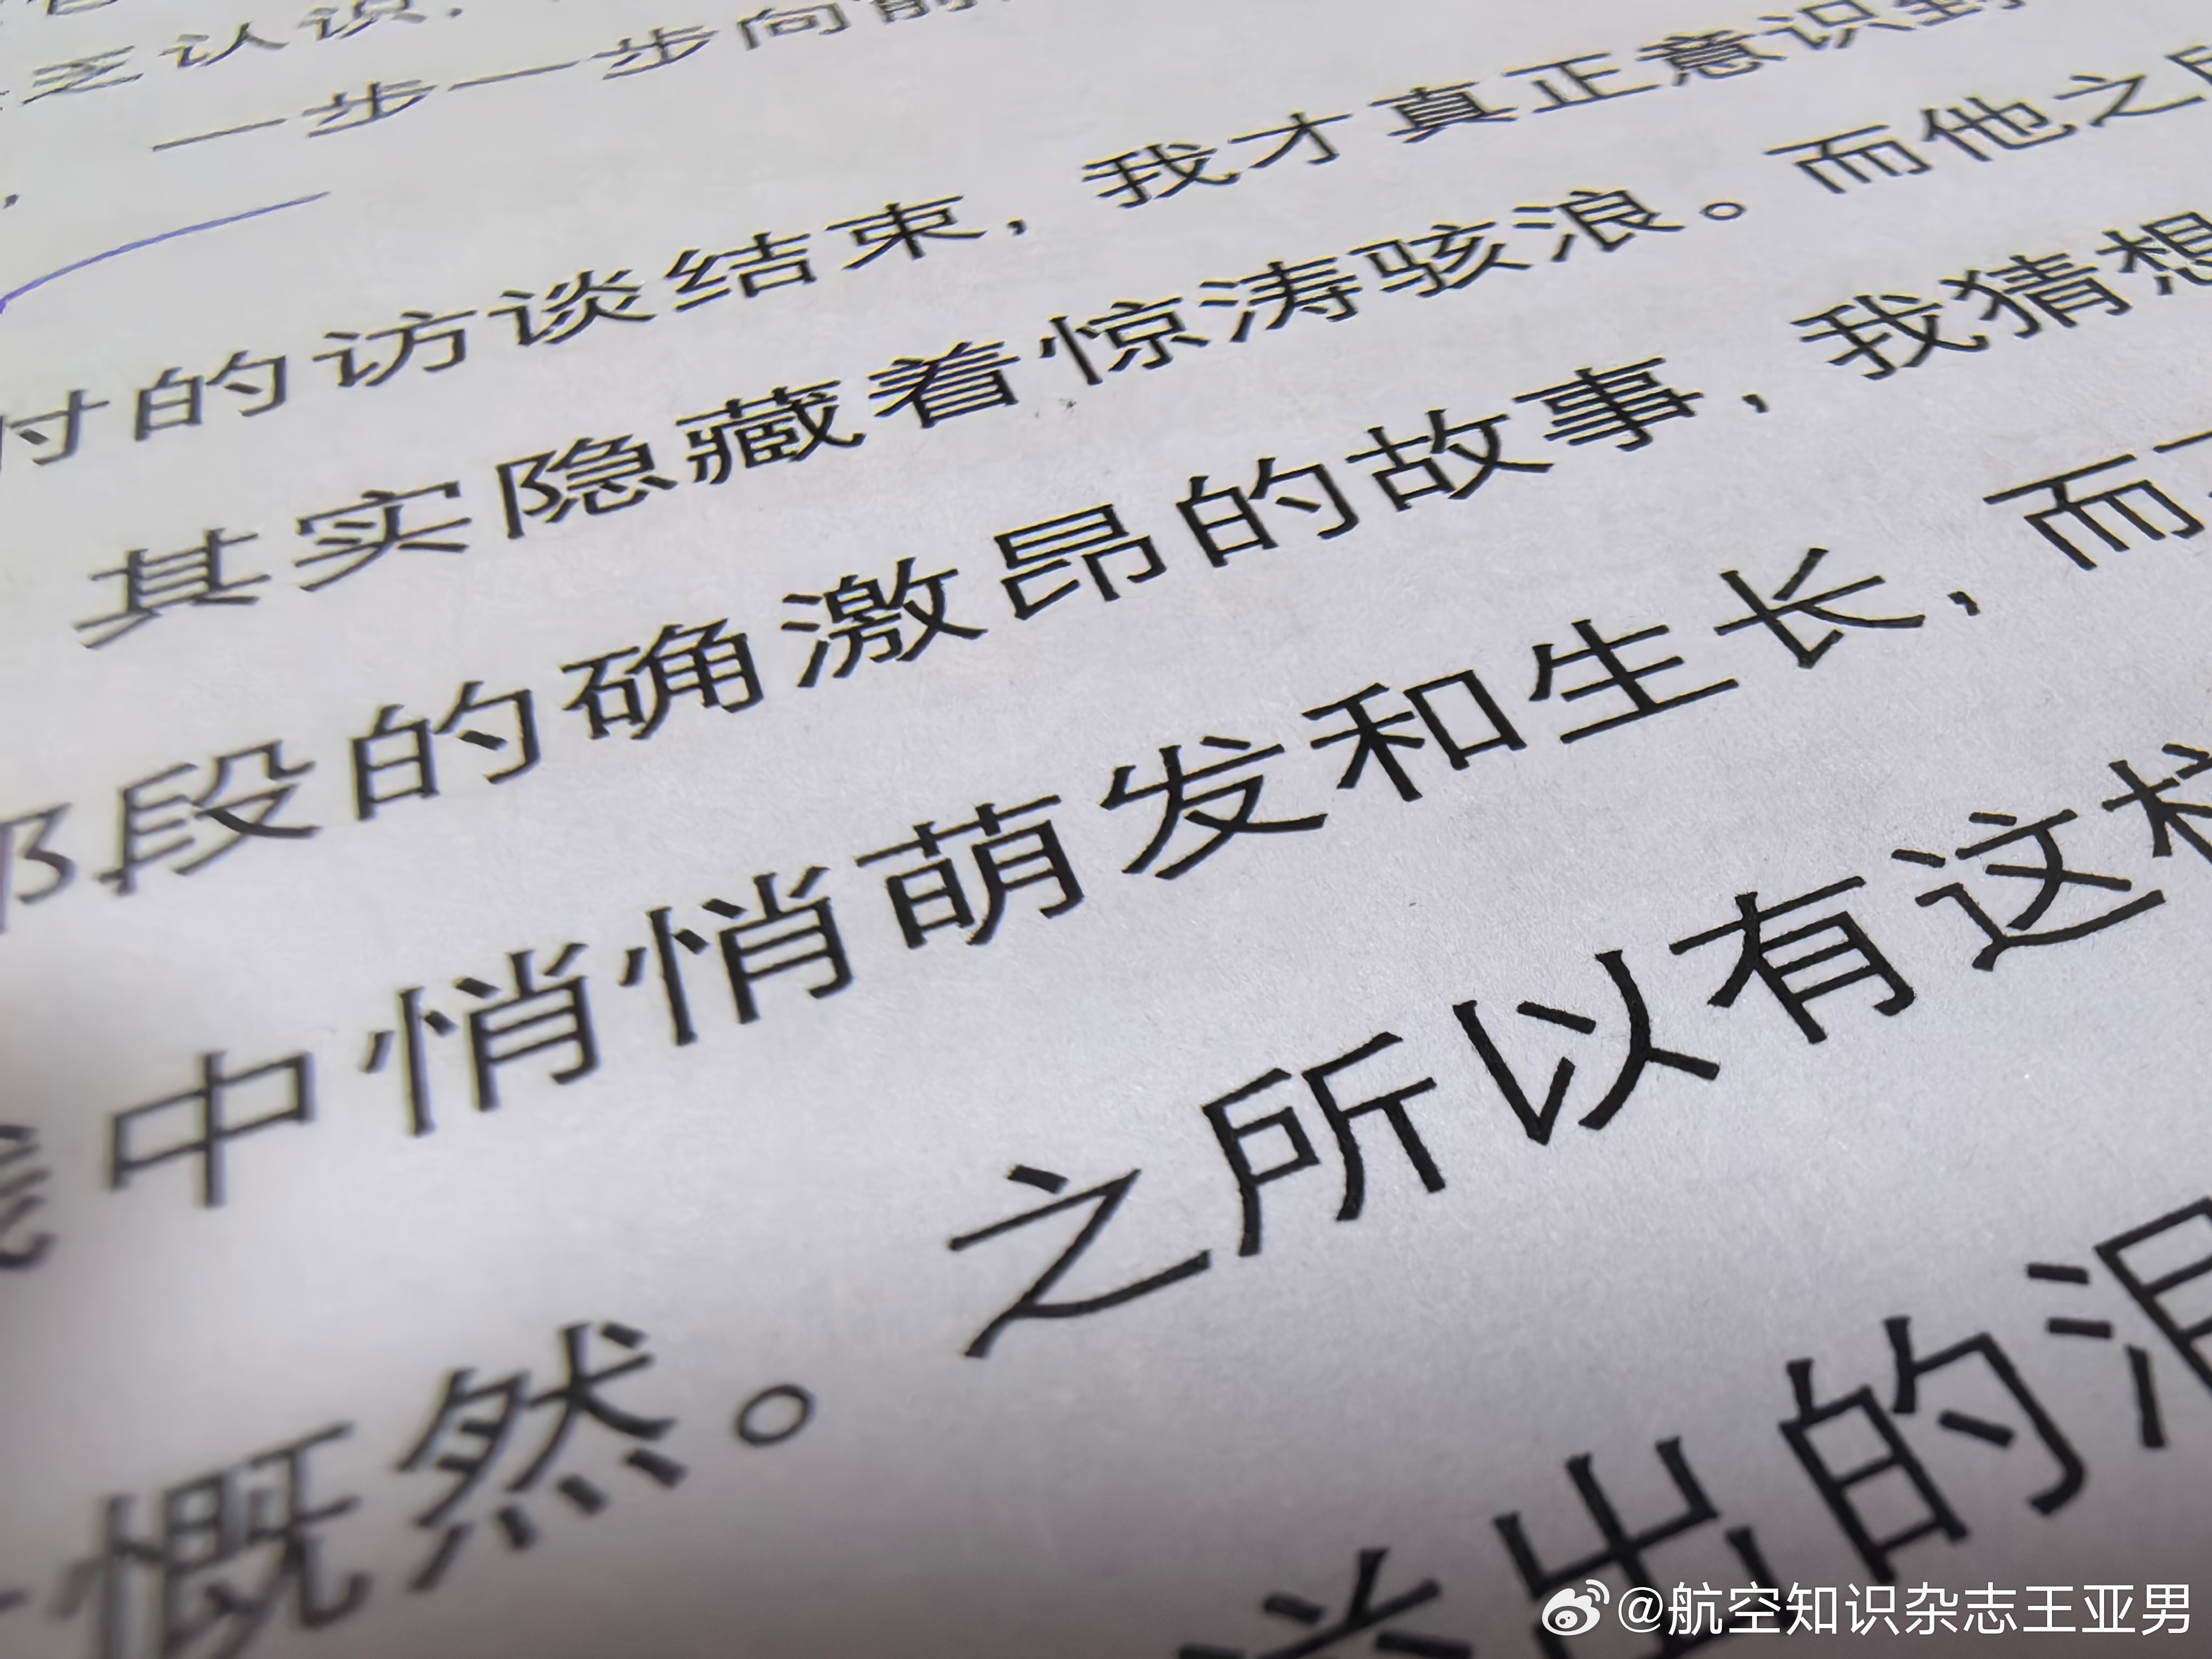 乏认识，
，一步一步向前
时的访谈结束，我才真正意识到
其实隐藏着惊涛骇浪。而他之所
那段的确激昂的故事，我猜想
中悄悄萌发和生长，而
慨然。之所以有这样
出的泪
@航空知识杂志王亚男